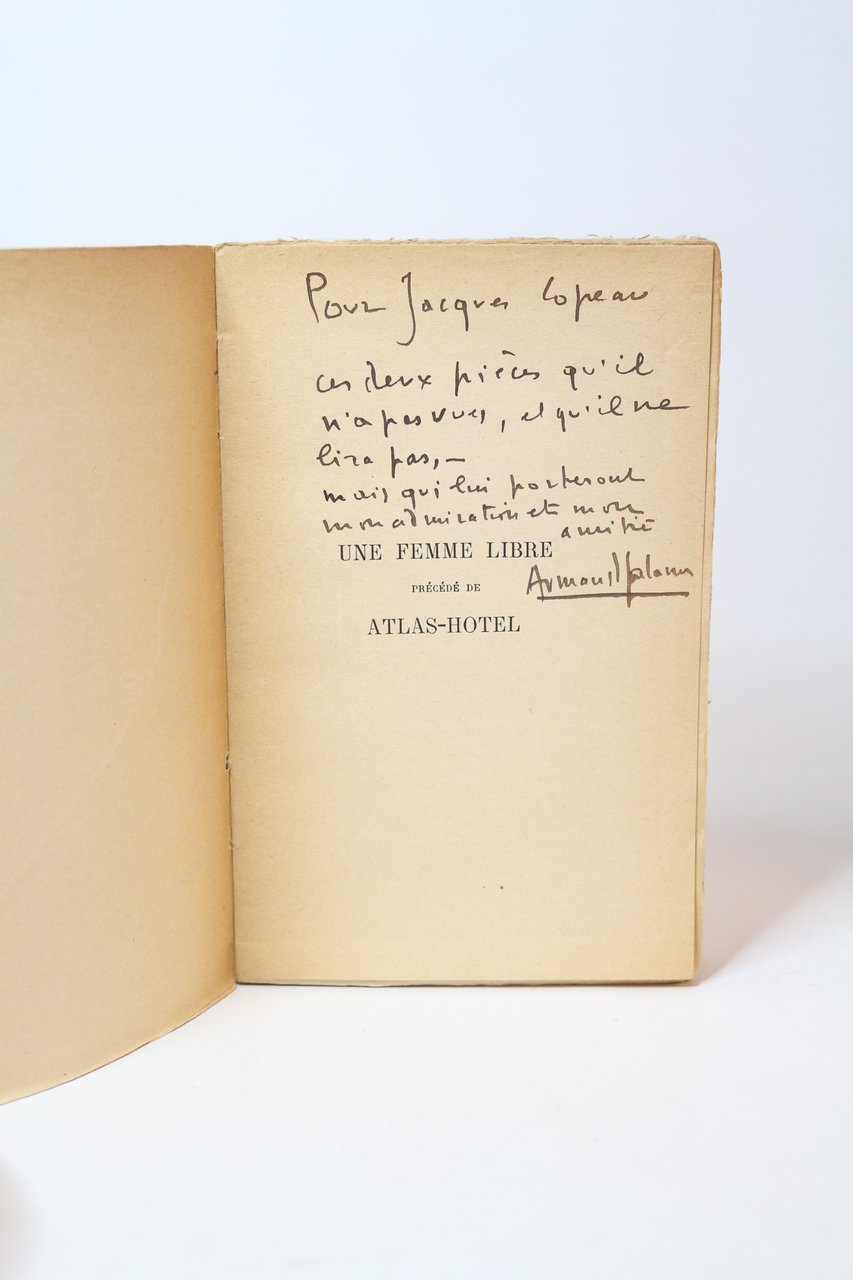 Pour Jacques Copeau
ces deux pièces qu'il
n'a pas vues, et qu'il ne
lira pas, —
mais qui lui porteront
mon admiration et mon
amitié
UNE FEMME LIBRE
Armand Salacrou
PRÉCÉDÉ DE
ATLAS-HOTEL